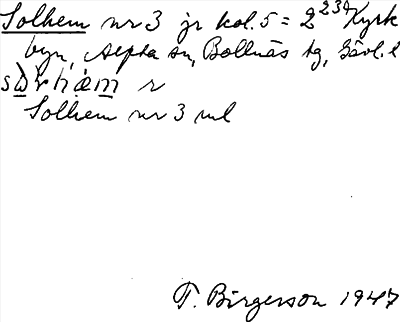 Solhem nr 3 jr kol. 5 = 2²³⁹ Kyrk
byn, Alfta sn, Bollnäs tg, Gävl. l
Solhem nr 3 ml
T. Birgerson 1947